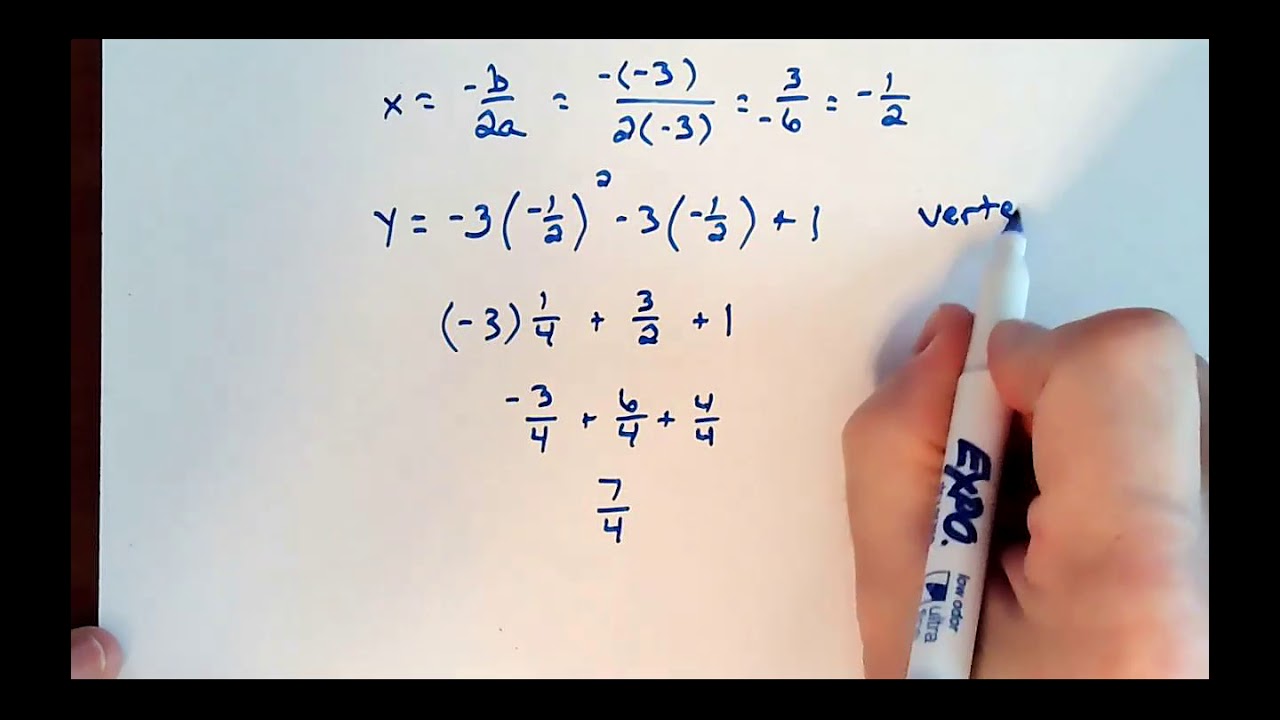 x = -b/2a = -(-3)/2(-3) = 3/-6 = -1/2
y = -3(-1/2)² - 3(-1/2) + 1
verte
(-3) 1/4 + 3/2 + 1
-3/4 + 6/4 + 4/4
7/4
EXPO.
low odor
ultra